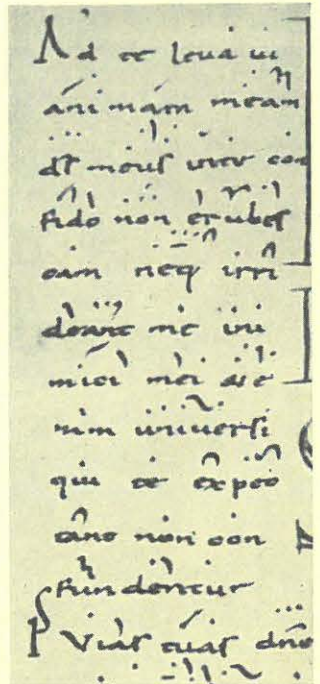 Ad te leua ui
animam meam
ds meus inte con
fido non erubes
cam neq irri
deant me ini
mici mei et e
nim uniuersi
qui te expec
tant non con
fundentur
Ps Vias tuas dne